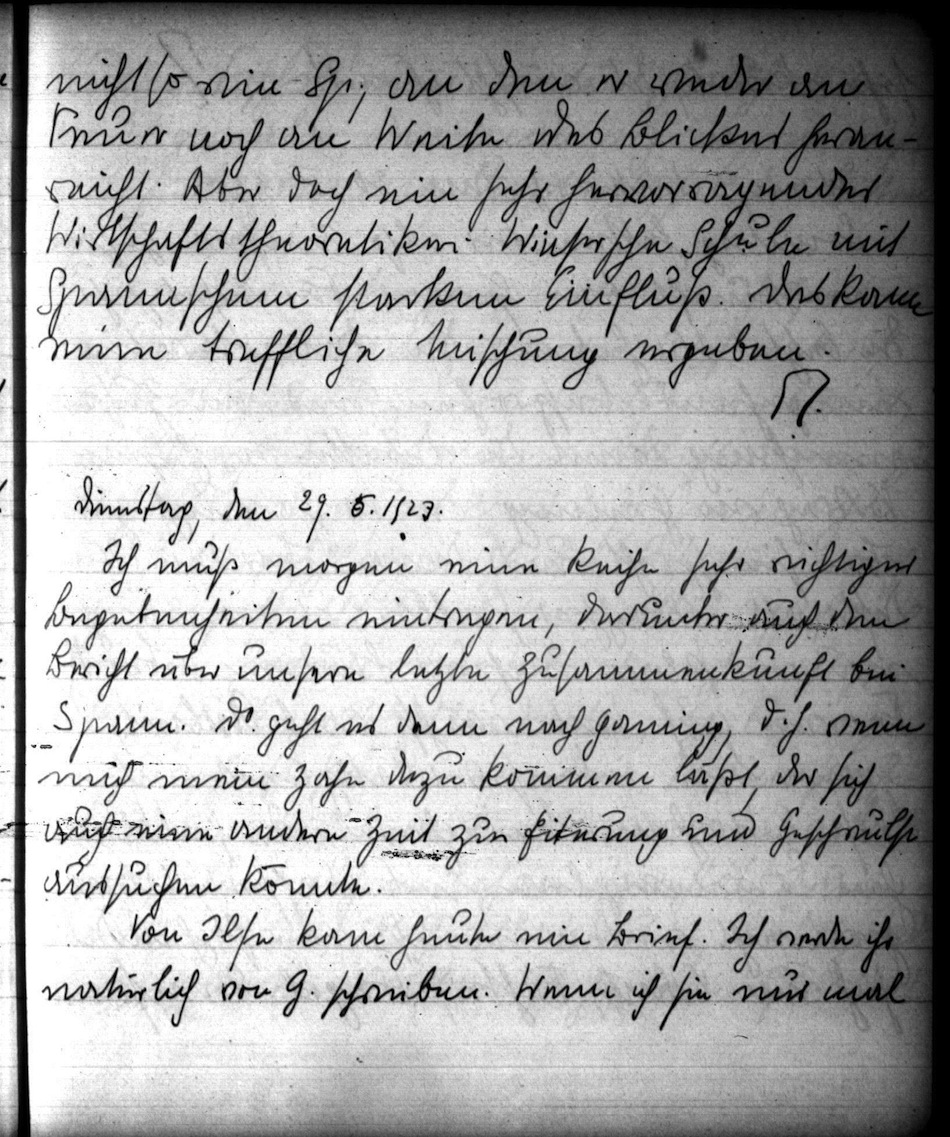 nicht so wie Sp., an dem er weder an
Feuer noch an Weite des Blickes heran-
reicht. Aber doch ein sehr hervorragender
Wirtschaftstheoretiker. Wiener'sche Schule mit
Spann'schem starkem Einfluß. Das kann
eine treffliche Mischung ergeben.
Dienstag, den 29. 5. 1923.
Ich muß morgen eine Reihe sehr wichtiger
Begebenheiten eintragen, darunter auch den
Bericht über unsere letzte Zusammenkunft bei
Spann. Do. geht es dann nach Gaming, d.h. wenn
mich mein Zahn dazu kommen läßt, der sich
auch eine andere Zeit zur Eiterung und Geschwulst
aussuchen könnte.
Von Ilse kam heute ein Brief. Ich werde ihr
natürlich von G. schreiben. Wenn ich sie nur mal